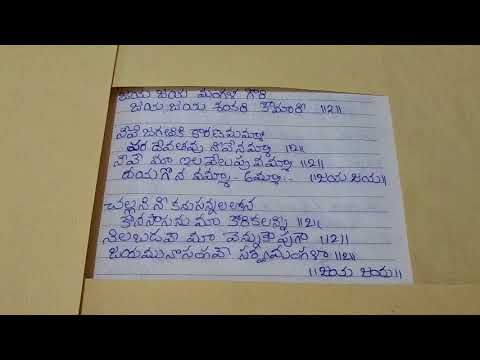 జయ జయ మంగళ గౌరి
జయ జయ శంకరి కౌమారి ॥2॥
నీవే జగతికి కారణమమ్మా
పర దేవతవు నీవేనమ్మా ॥2॥
నీవే మా ఇలవేలుపు వమ్మా ॥2॥
దయగొన వమ్మా.. ॥జయ జయ॥
చల్లని నీ కనుసన్నలలోన
కొనసాగును మా కోరికలన్ని ॥2॥
నిలబడవా మా వెన్ను కాపుగా ॥2॥
జయమునొసంగవే సర్వమంగళా ॥2॥
॥జయ జయ॥